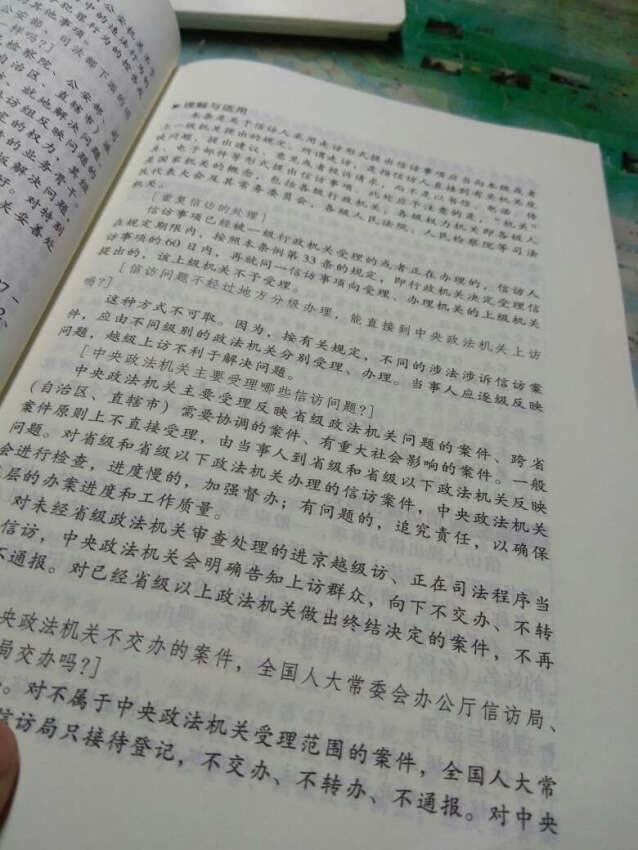 公安机关
犯罪行为的
中的违
其他事项
公安部、司法部下
样吗?]
检察院、公安部
自治区、直辖市)
就地解决问题
访组反映问题的
定的权力,其
的业务
版解决问题,
于:对特
关妥善处
▶理解与适用
本条是关于信访人采用走访形式提出信访事项应当向本级或者
上一级机关提出的规定。所谓走访,是指信访人直接到有关机关反
映问题,提出建议、意见或者投诉请求,而不是以书信、电话、传
真、电子邮件等形式提出信访事项。此处应予注意的是,“机关”
是国家机关的概念,包括各级行政机关;各级权力机关即各级人
民代表大会及其常务委员会,各级人民法院、人民检察院等司法
机关。
[重复信访的处理]
信访事项已经被一级行政机关受理的或者正在办理的,信访人
在规定期限内,按照本条例第33条的规定,即行政机关决定受理信
访事项的60日内,再就同一信访事项向受理、办理机关的上级机关
提出的,该上级机关不予受理。
[信访问题不经过地方分级办理,能直接到中央政法机关上访
吗?]
这种方式不可取。因为,按有关规定,不同的涉法涉诉信访案
件,应由不同级别的政法机关分别受理、办理。当事人应逐级反映
问题,越级上访不利于解决问题。
[中央政法机关主要受理哪些信访问题?]
中央政法机关主要受理反映省级政法机关问题的案件、跨省
(自治区、直辖市)需要协调的案件、有重大社会影响的案件。一般
案件原则上不直接受理,由当事人到省级和省级以下政法机关反映
问题。对省级和省级以下政法机关办理的信访案件,中央政法机关
会进行检查,进度慢的,加强督办;有问题的,追究责任,以确保
层的办案进度和工作质量。
对未经省级政法机关审查处理的进京越级访、正在司法程序当
信访,中央政法机关会明确告知上访群众,向下不交办、不转
不通报。对已经省级以上政法机关做出终结决定的案件,不再
央政法机关不交办的案件,全国人大常委会办公厅信访局、
局交办吗?]
。对不属于中央政法机关受理范围的案件,全国人大常
信访局只接待登记,不交办、不转办、不通报。对中央